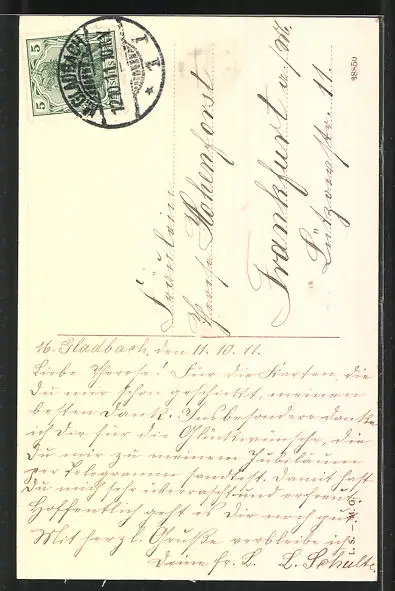 5 5
M. GLADBACH
Fräulein
Hohenforst
Frankfurt a/M.
Lützowstr. 11.
38850
M. Gladbach, den 11.10.11.
Liebe Therese! Für die Karten, die
Du mir schon geschickt, meinen
besten Dank. Insbesondere danke
ich Dir für die Glückwünsche, die
Du mir zu meinem Jubiläum
per Telegramm sandtest. Damit hast
Du mich sehr überrascht und erfreut.
Hoffentlich geht es Dir noch gut.
Mit herzl. Gruße verbleibe ich
Deine fr. L. L. Schulte.